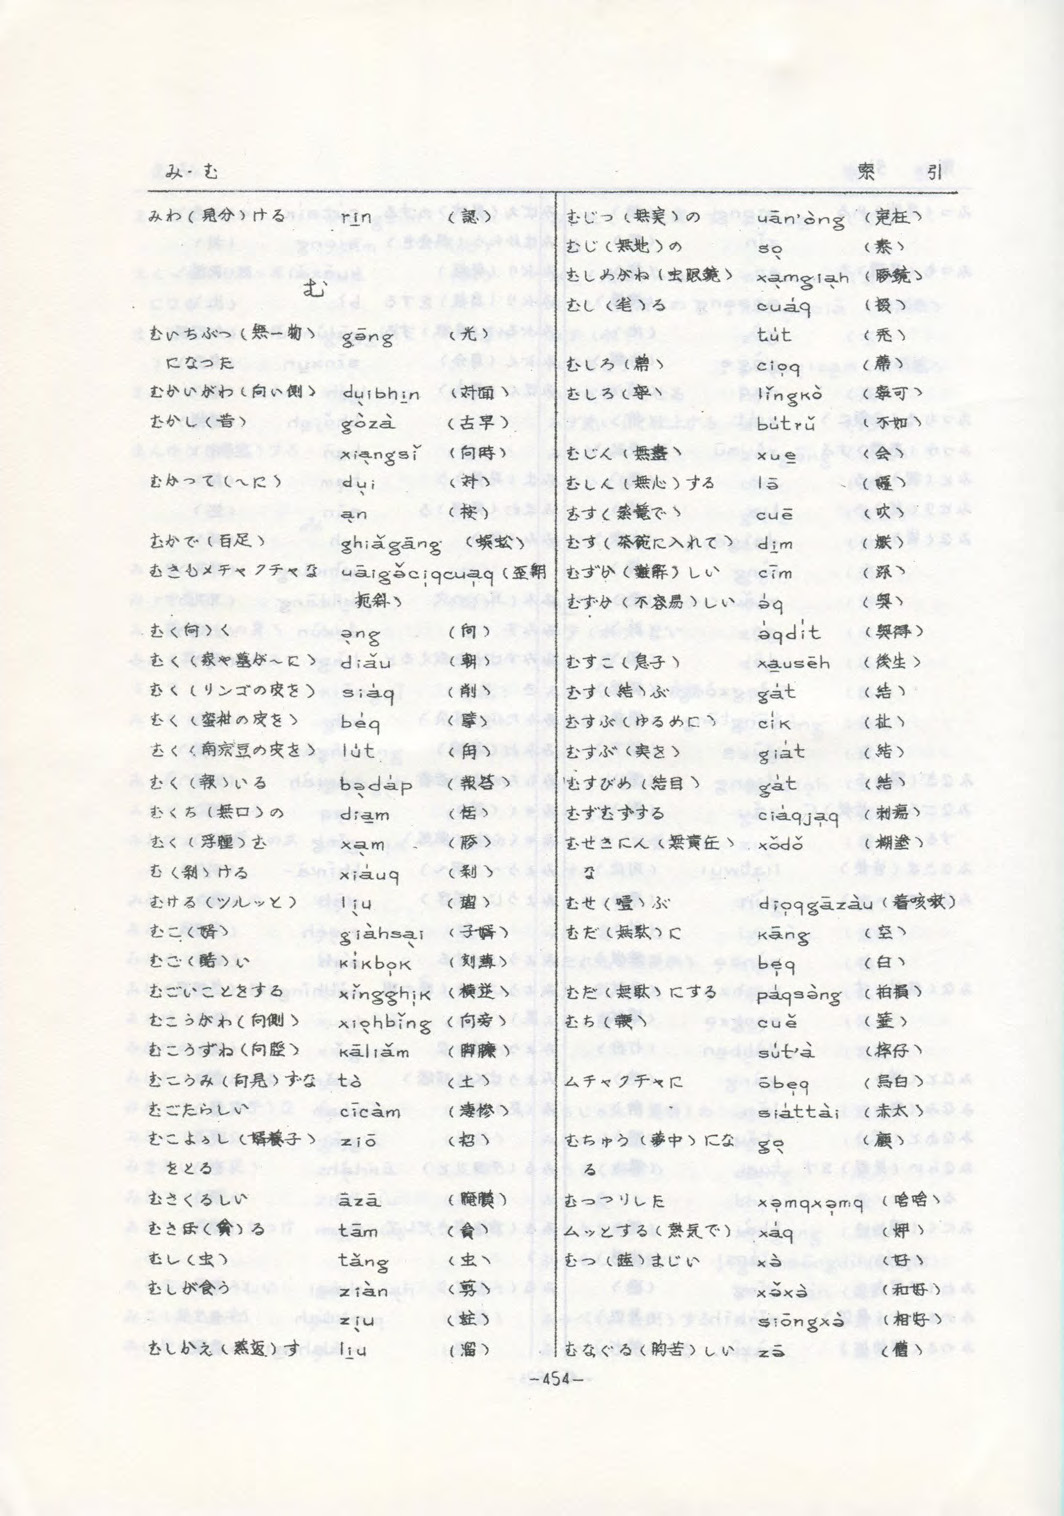 み・む
索 引
みわ(見分)ける rı̲n (認)
む
むいちぶつ(無一物) gāng (光)
になった
むかいがわ(向い側) du̖ibhi̲n (対面)
むかし(昔) gòzà (古早)
xia̖ngsǐ (向時)
むかって(〜に) du̖i (対)
a̖n (按)
むかで(百足) ghiǎgāng (蜈蚣)
むさむメチャクチャな uāigə̌ci̖qcua̖q (歪朝
扼斜)
むく(向)く a̖ng (向)
むく(家や墓が〜に) diǎu (朝)
むく(リンゴの皮を) siáq (削)
むく(蜜柑の皮を) béq (擘)
むく(南京豆の皮を) lút
むく(報)いる bə̖dáp (報答
むくち(無口)の dia̲m (恬)
むく(浮腫)む xa̖m
む(剝)ける xiáuq (剝)
むける(ツルッと) li̖u
むこ(婿) giàhsa̖i (子婿)
むご(酷)い kíkbo̖k (刻薄)
むごいことをする xǐngghi̖k (横逆)
むこうがわ(向側) xiə̖hbǐng (向旁)
むこうずね(向脛) kāliǎm (脚臁)
むこうみ(向見)ずな tò (土)
むごたらしい cīcàm (凄惨)
むこようし(婿養子) ziō (招)
をとる
むさくるしい āzā (腌臢)
むさぼ(貪)る tām (貪)
むし(虫) tǎng (虫)
むしが食う ziàn (剪)
zi̖u (蛀)
むしかえ(蒸返)す li̲u (溜)
むじつ(無実)の uān'òng (冤枉)
むじ(無地)の so̖ (素)
むしめがね(虫眼鏡) xa̖mgia̖h
むし(毟)る cuáq
tút (禿)
むしろ(蓆) ciə̖q (蓆)
むしろ(寧) lǐngkò (寧可)
bútrǔ (不如)
むじん(無盡) xue̲ (会)
むしん(無心)する lə̄
むす(蒸籠で) cuē (炊)
むす(茶碗に入れて) di̲m
むずか(難解)しい cīm (深)
むずか(不容易)しい ə́q
ə́qdít
むすこ(息子) xa̲usēh (後生)
むす(結)ぶ gát (結)
むすぶ(ゆるめに) cík
むすぶ(実を) giát (結)
むすびめ(結目) gát (結)
むずむずする ciáqja̖q
むせきにん(無責任) xǒdǒ (糊塗)
な
むせ(噎)ぶ diə̖qgāzàu (着咳嗽)
むだ(無駄)に kāng (空)
be̖q (白)
むだ(無駄)にする páqsə̀ng (拍損)
むち(鞭) cuě (箠)
sút'à
ムチャクチャに ōbe̖q (烏白)
siáttài (赤太)
むちゅう(夢中)にな go̖ (顧)
る
むっつりした xə̖mqxə̖mq
ムッとする(熱気で) xáq
むつ(睦)まじい xə̀ (好)
xə̌xə̀ (和好)
siōngxə̀ (相好)
むなぐる(胸苦)しい zə̄
-454-